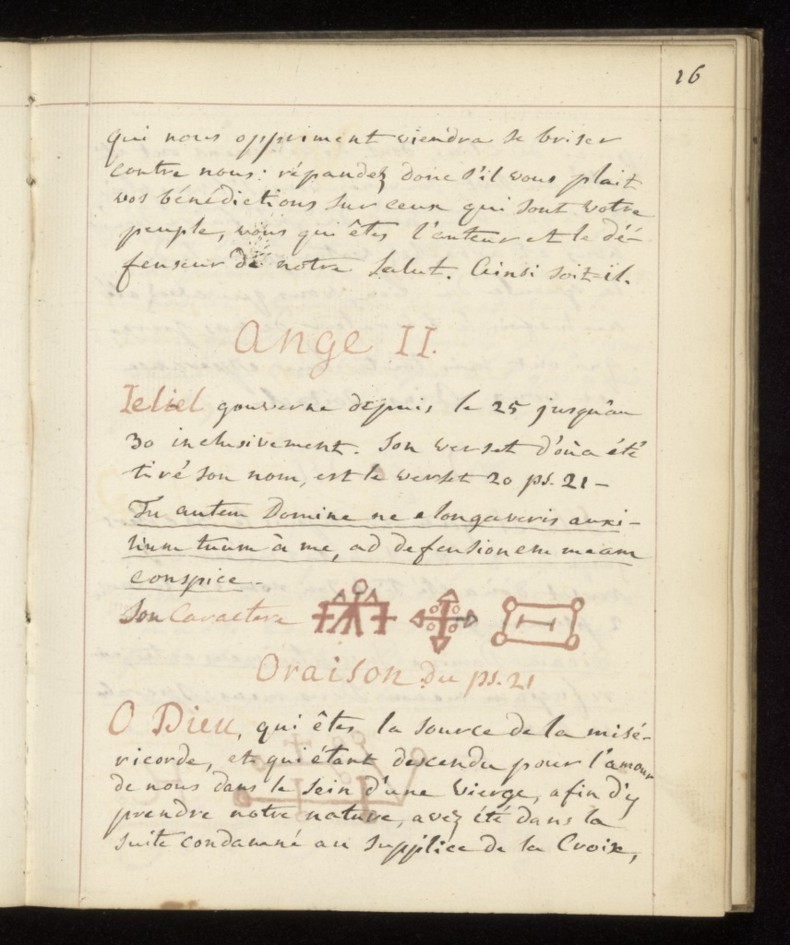 16
qui nous oppriment viendra se briser
contre nous: répandez donc s'il vous plait
vos bénédictions sur ceux qui sont votre
peuple, vous qui êtes l'auteur et le dé-
fenseur de notre Salut. Ainsi soit-il.
Ange II.
Ieliel gouverne depuis le 25 jusqu'au
30 inclusivement. Son verset d'où a été
tiré son nom, est le verset 20 ps. 21 -
Tu autem Domine ne elongaveris auxi-
lium tuum à me, ad defensionem meam
conspice.
Son Caractere
Oraison du ps. 21
O Dieu, qui êtes la source de la misé-
ricorde, et qui étant descendu pour l'amour
de nous dans le sein d'une Vierge, afin d'y
prendre notre nature, avez été dans la
suite condamné au supplice de la Croix,